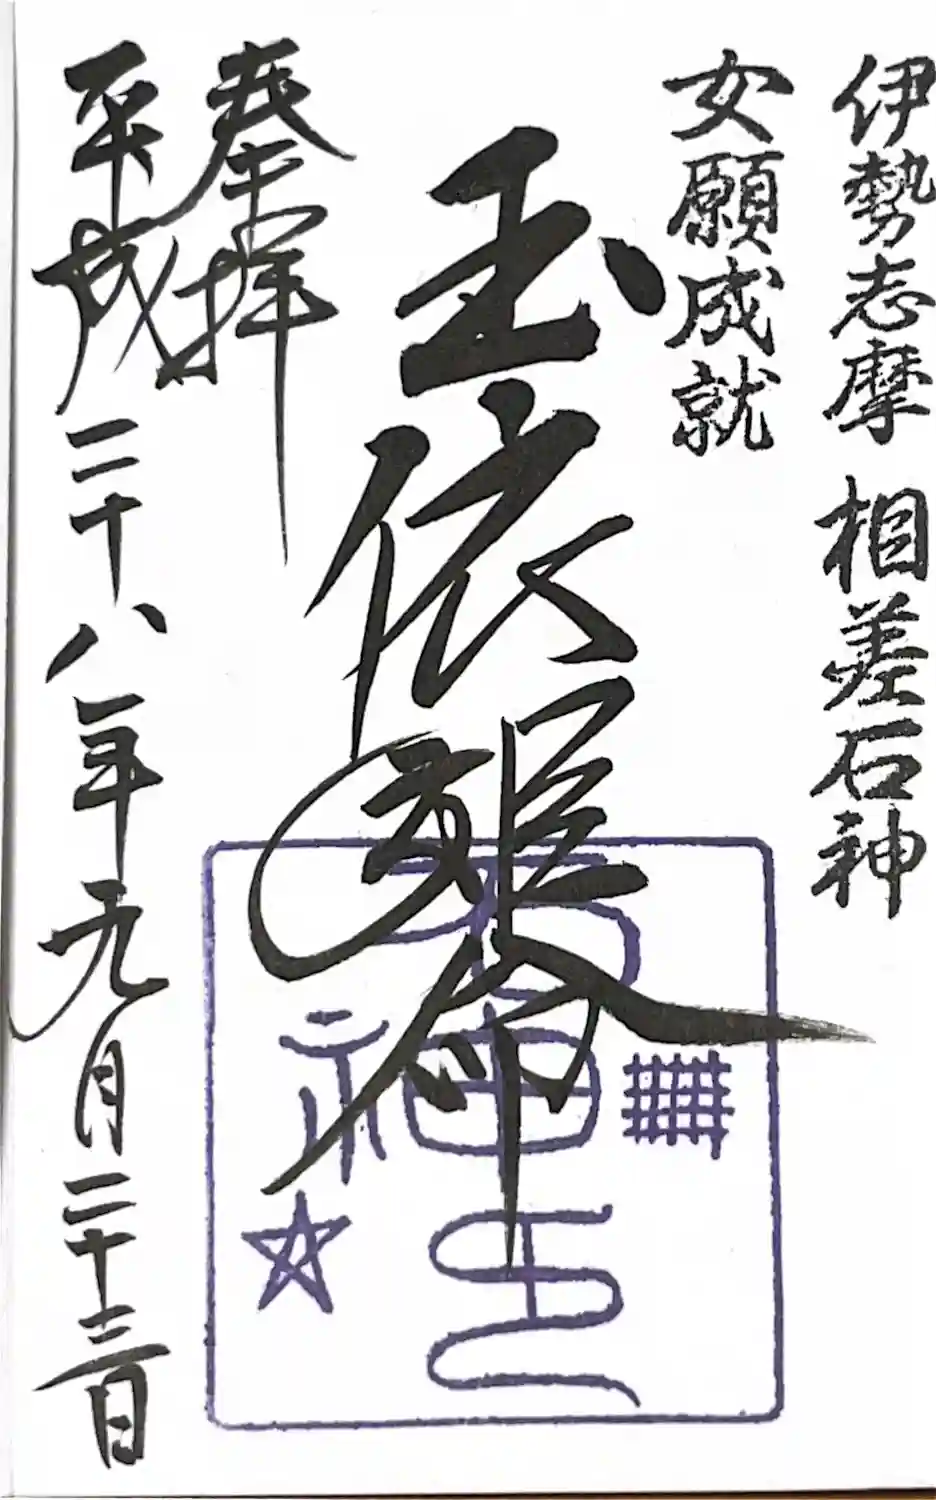 伊勢志摩 相差石神
女願成就
玉依姫命
奉拝
平成二十八年元月二十三日
石神